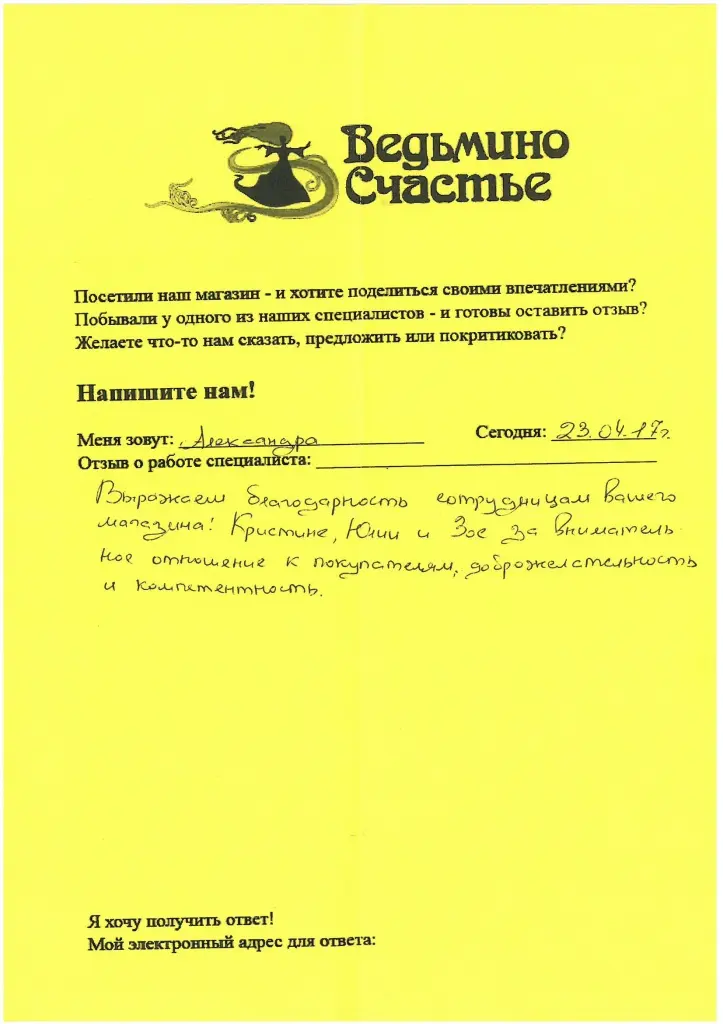 Ведьмино
Счастье
Посетили наш магазин - и хотите поделиться своими впечатлениями?
Побывали у одного из наших специалистов - и готовы оставить отзыв?
Желаете что-то нам сказать, предложить или покритиковать?
Напишите нам!
Меня зовут: Александра Сегодня: 23.04.17г.
Отзыв о работе специалиста:
Выражаем благодарность сотрудницам вашего
магазина! Кристине, Юлии и Зое за вниматель
ное отношение к покупателям, доброжелательность
и компетентность.
Я хочу получить ответ!
Мой электронный адрес для ответа: